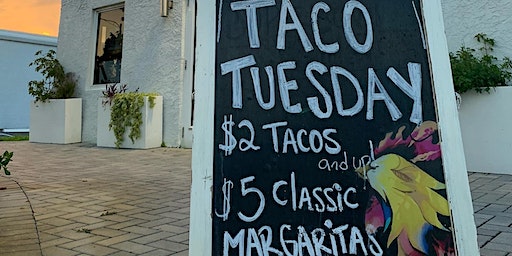 TACO
TUESDAY
$2 TACOS
and up!
$5 CLASSIC
MARGARITAS